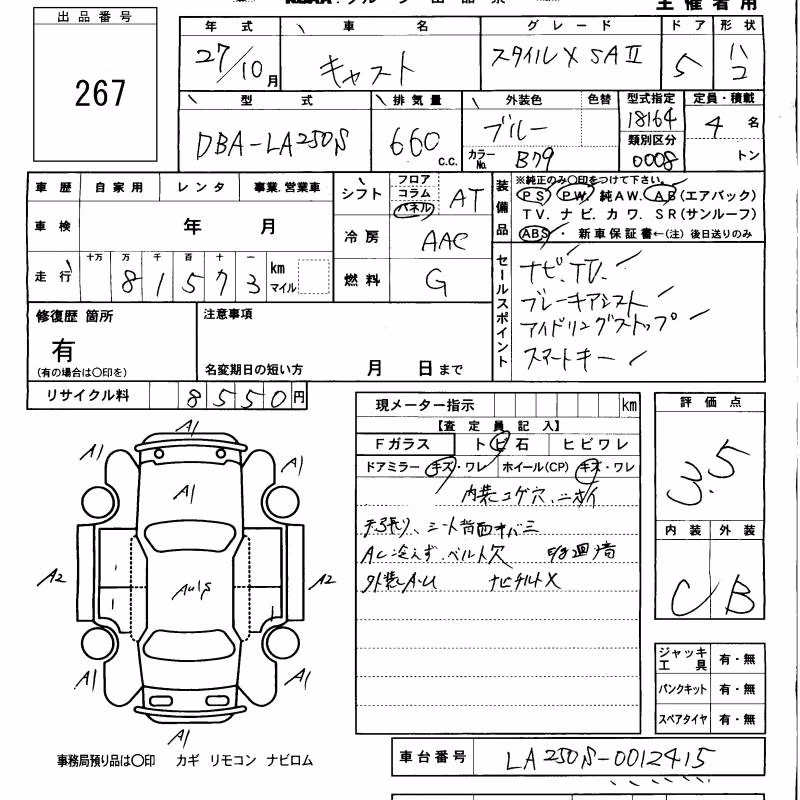 主催者用
出品番号
267
年式 車名 グレード ドア 形状
27/10月 キャスト スタイルX SAⅡ 5 ハコ
型式 排気量 外装色 色替 型式指定 定員・積載
DBA-LA250S 660 c.c. ブルー 18164 4 名
カラーNo. B79 類別区分 0008 トン
車歴 自家用 レンタ 事業.営業車
車検 年 月
走行 十万 万 千 百 十 一 km マイル
8 1 5 7 3
シフト フロア コラム パネル AT
冷房 AAC
燃料 G
装備品
※純正のみ〇印をつけて下さい。
PS PW 純AW. AB(エアバック)
TV. ナビ. カワ. SR(サンルーフ)
ABS ・ 新車保証書←(注) 後日送りのみ
セールスポイント
ナビ.TV.
ブレーキアシスト
アイドリングストップ
スマートキー
修復歴 箇所
有
(有の場合は〇印を)
注意事項
名変期日の短い方 月 日まで
リサイクル料 8550円
現メーター指示 km
【査定員記入】
Fガラス トビ石 ヒビワレ
ドアミラー キズ・ワレ ホイール(CP) キズ・ワレ
内装コゲ穴、ニオイ
天張り、シート背面
AC冷えず、ベルト欠
外装A・U ナビチルト✕
評価点
3.5
内装 外装
C B
ジャッキ工具 有・無
パンクキット 有・無
スペアタイヤ 有・無
A1
A1 A1
A1
A2 A2
A1
A1 A1
A1
事務局預り品は〇印 カギ リモコン ナビロム
車台番号 LA250S-0012415